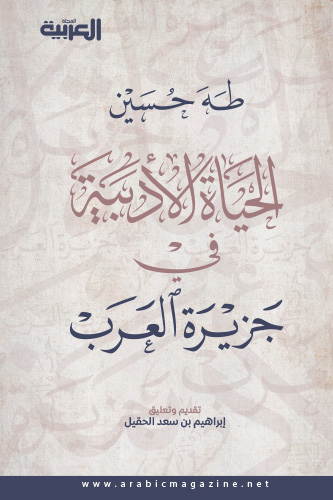 المجلة
العربية
طَهَ حُسَيْن
الحَيَاة الأَدَبِيَة
فِي
جَزِيْرَة العَرَب
تقديم وتعليق
إبراهيم بن سعد الحقيل
www.arabicmagazine.net